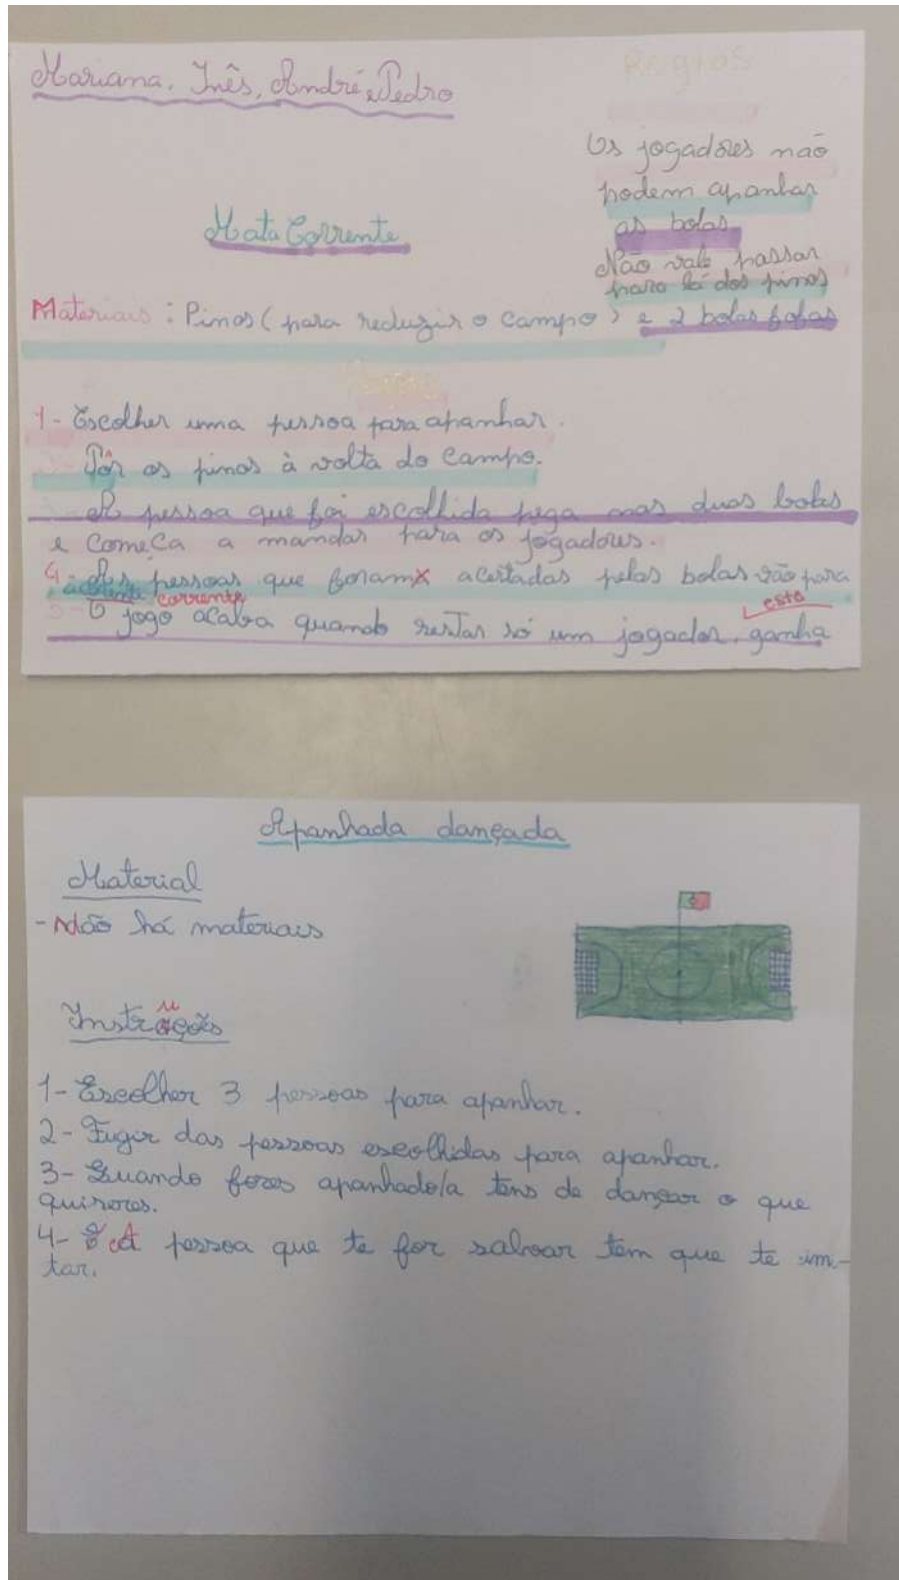 Mariana, Inês, André e Pedro
Regras
Os jogadores não
podem apanhar
as bolas
Não vale passar
para lá dos pinos
Mata Corrente
Materiais: Pinos (para reduzir o campo) e 2 bolas fofas
1- Escolher uma pessoa para apanhar.
Pôr os pinos à volta do campo.
A pessoa que foi escolhida pega nas duas bolas
e começa a mandar para os jogadores.
4- As pessoas que foram acertadas pelas bolas vão para
a corrente
5- O jogo acaba quando restar só um jogador, ganha
este
Apanhada dançada
Material
- Não há materiais
Instruções
1- Escolher 3 pessoas para apanhar.
2- Fugir das pessoas escolhidas para apanhar.
3- Quando fores apanhado/a tens de dançar o que
quiseres.
4- A pessoa que te for salvar tem que te imi-
tar.